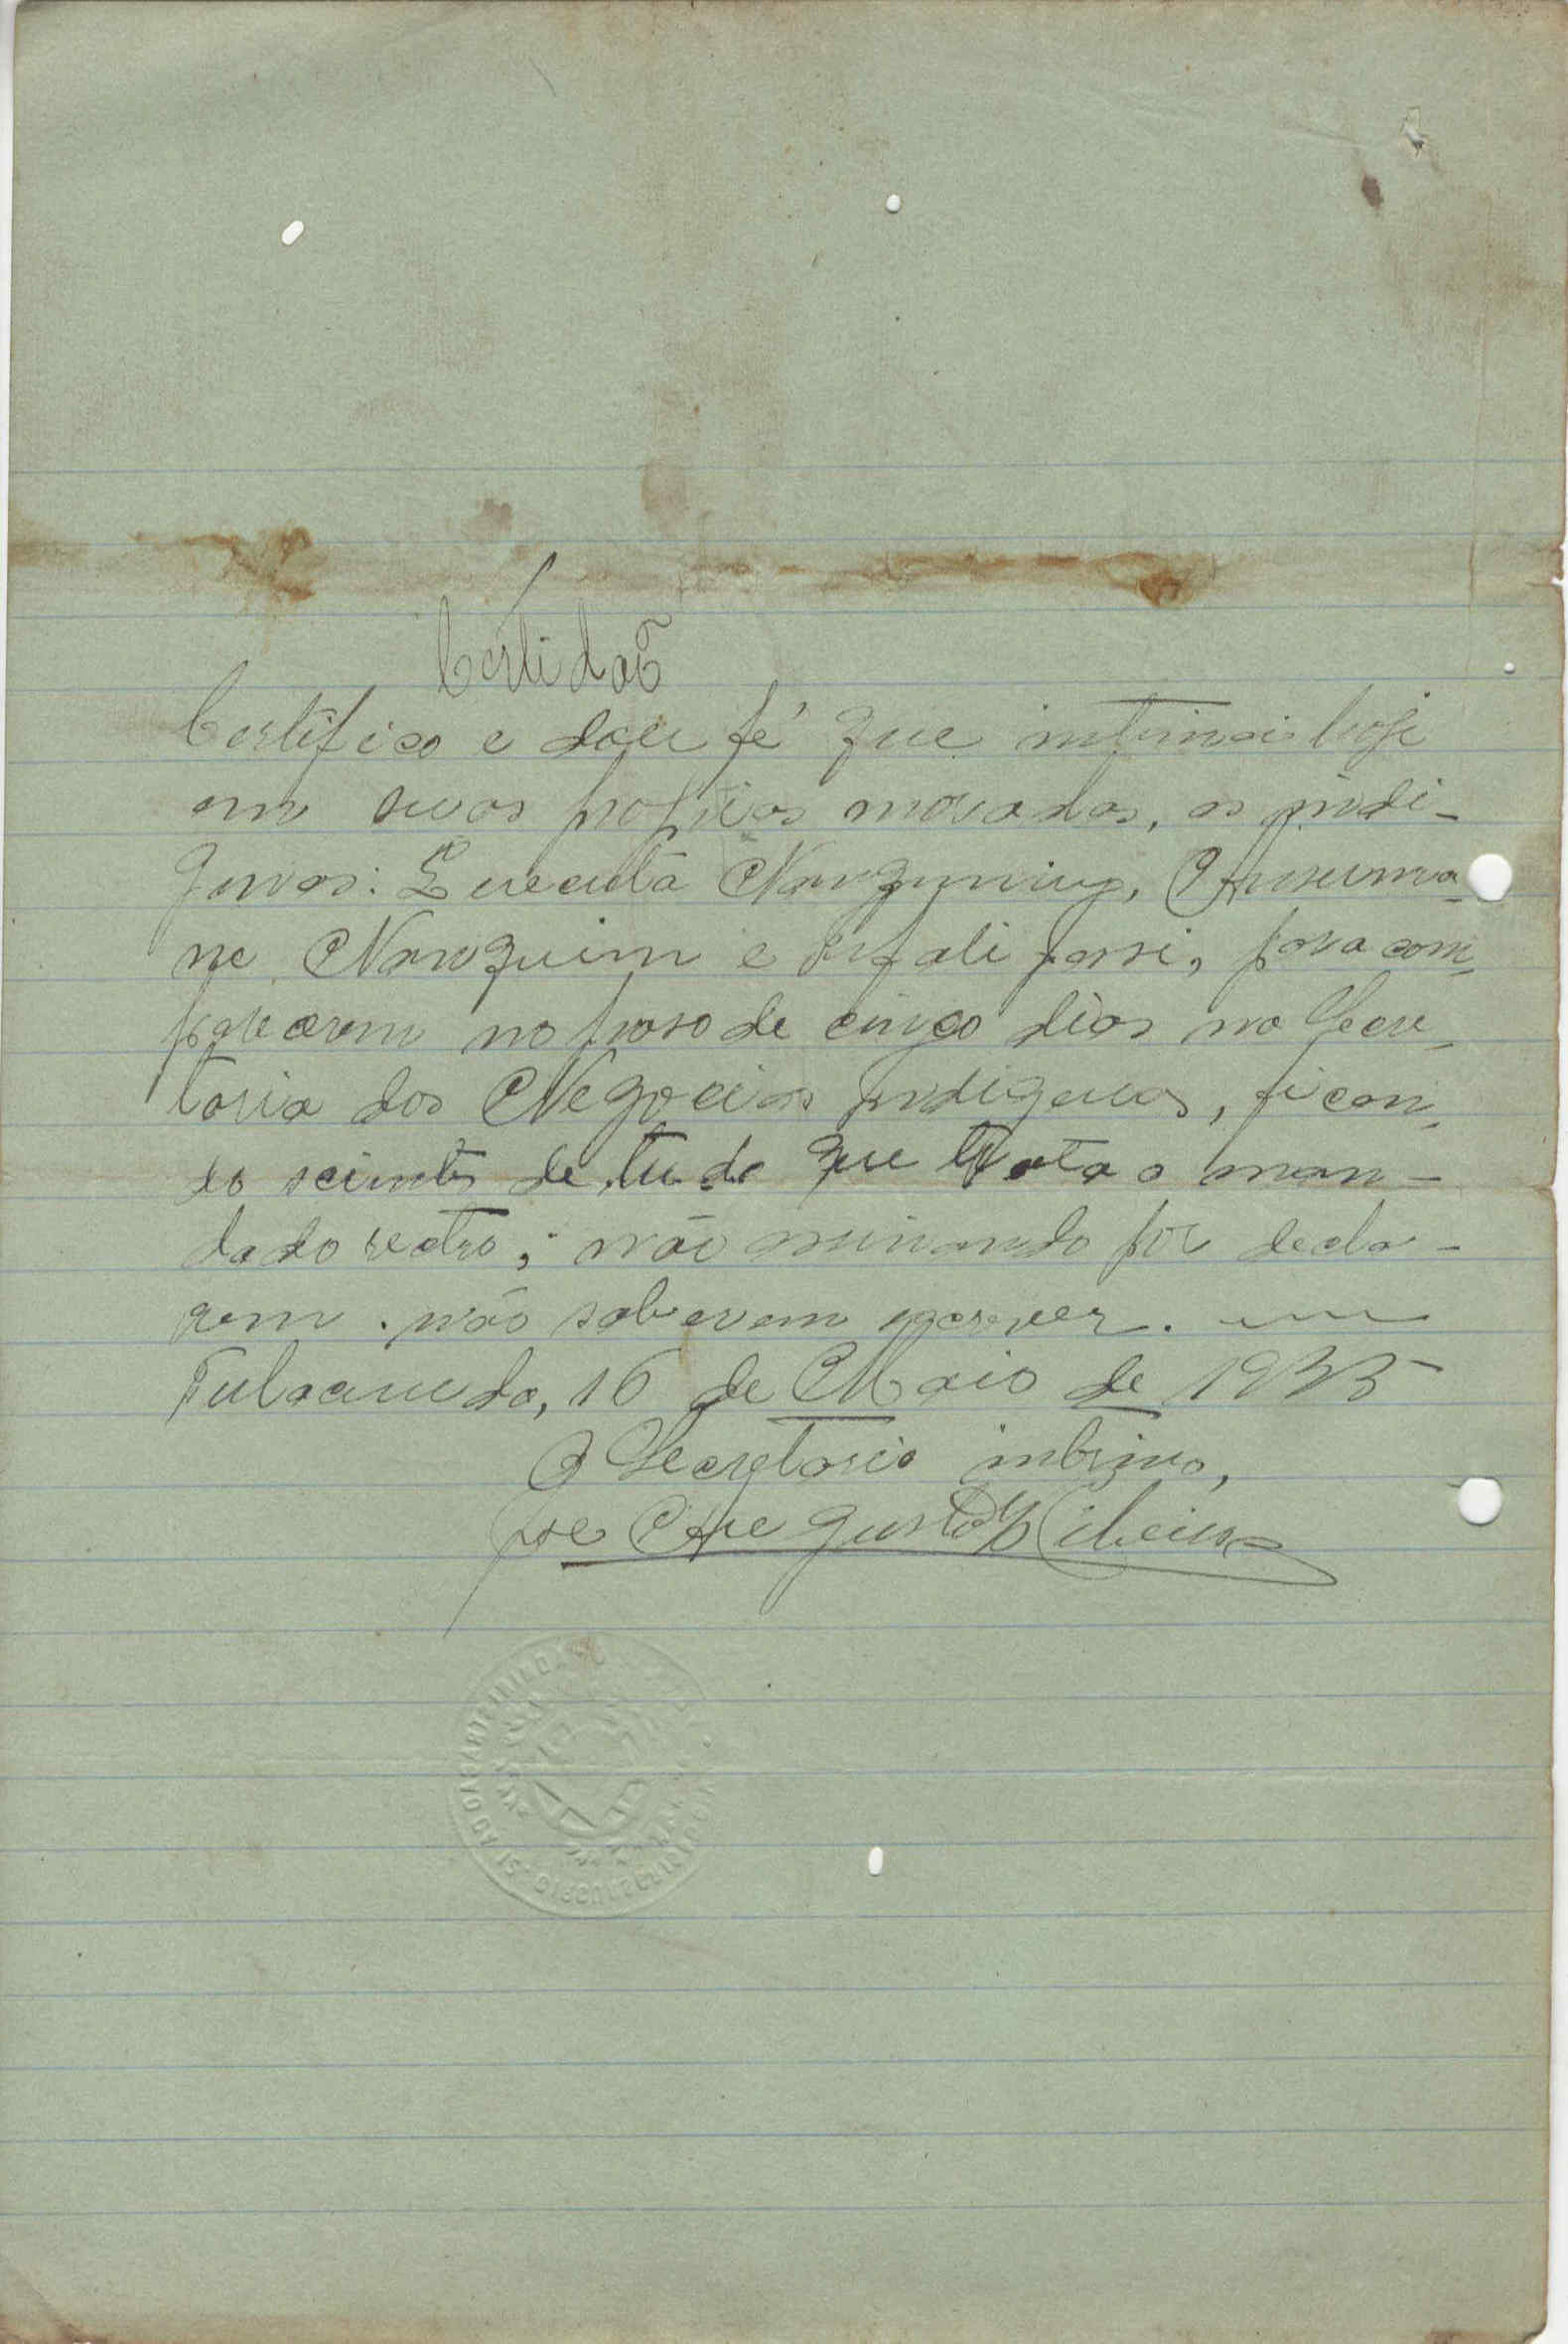 Certidão
Certifico e dou fé que intimei hoje
em suas proprias moradas, os indi-
genas: Nanguim, Ansuma-
ne Nanguim e para com-
parecerem no praso de cinco dias na Secre-
taria dos Negocios Indigenas, fican-
do scientes de tudo que trata o man-
dado rectro; não assinando por decla-
rarem não saberem escrever.
Fulacunda, 16 de Maio de 1935
O Secretario interino,
José Augusto Ribeiro